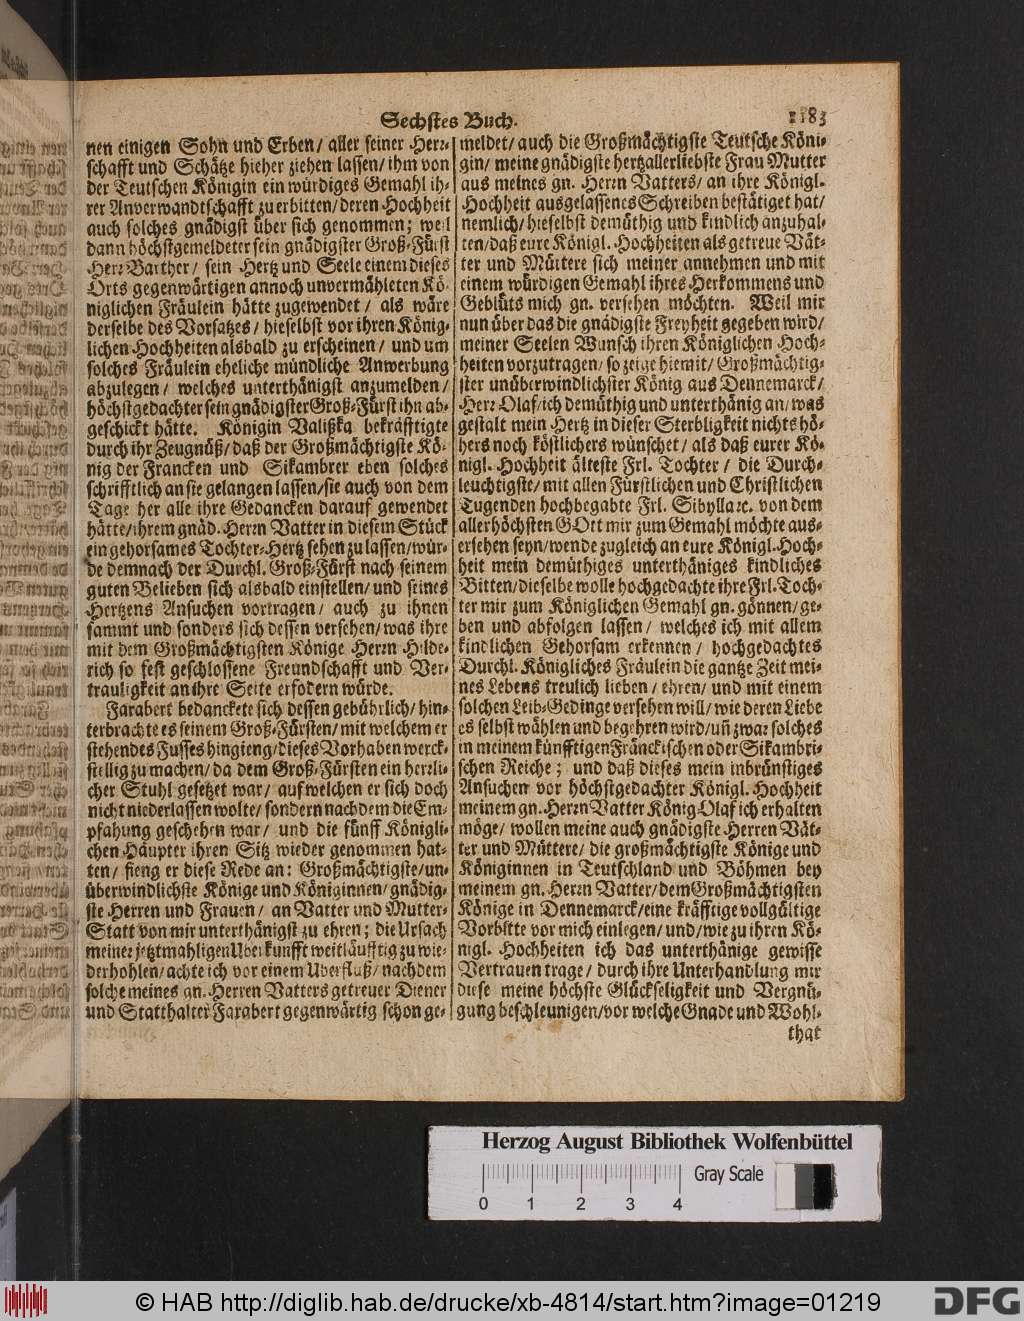 Sechstes Buch.
1183
nen einigen Sohn und Erben/ aller seiner Herr-
schafft und Schätze hieher ziehen lassen/ ihm von
der Teutschen Königin ein würdiges Gemahl ih-
rer Anverwandtschafft zu erbitten/ deren Hochheit
auch solches gnädigst über sich genommen; weil
dann höchstgemeldeter sein gnädigster Groß-Fürst
Herr Barther/ sein Hertz und Seele einem dieses
Orts gegenwärtigen annoch unvermähleten Kö-
niglichen Fräulein hätte zugewendet/ als wäre
derselbe des Vorsatzes/ hieselbst vor ihren König-
lichen Hochheiten alsbald zu erscheinen/ und um
solches Fräulein eheliche mündliche Anwerbung
abzulegen/ welches unterthänigst anzumelden/
höchstgedachter sein gnädigster Groß-Fürst ihn ab-
geschickt hätte. Königin Valißka bekräfftigte
durch ihr Zeugnüß/ daß der Großmächtigste Kö-
nig der Francken und Sikambrer eben solches
schrifftlich an sie gelangen lassen/ sie auch von dem
Tage her alle ihre Gedancken darauf gewendet
hätte/ ihrem gnäd. Herrn Vatter in diesem Stück
ein gehorsames Tochter-Hertz sehen zu lassen/ wür-
de demnach der Durchl. Groß-Fürst nach seinem
guten Belieben sich alsbald einstellen/ und seines
Hertzens Ansuchen vortragen/ auch zu ihnen
sammt und sonders sich dessen versehen/ was ihre
mit dem Großmächtigsten Könige Herrn Hilde-
rich so fest geschlossene Freundschafft und Ver-
trauligkeit an ihre Seite erfodern würde.
Farabert bedanckete sich dessen gebührlich/ hin-
terbrachte es seinem Groß-Fürsten/ mit welchem er
stehendes Fusses hingieng/ dieses Vorhaben werck-
stellig zu machen/ da dem Groß-Fürsten ein herrli-
cher Stuhl gesetzet war/ auf welchen er sich doch
nicht niederlassen wolte/ sondern nach dem die Em-
pfahung geschehen war/ und die fünff Königli-
chen Häupter ihren Sitz wieder genommen hat-
ten/ fieng er diese Rede an: Großmächtigste/ un-
überwindlichste Könige und Königinnen/ gnädig-
ste Herren und Frauen/ an Vatter und Mutter-
Statt von mir unterthänigst zu ehren; die Ursach
meiner jetztmahligen Uberkunfft weitläufftig zu wie-
derhohlen/ achte ich vor einem Uberfluß/ nachdem
solche meines gn. Herren Vatters getreuer Diener
und Statthalter Farabert gegenwärtig schon ge-
meldet/ auch die Großmächtigste Teutsche Köni-
gin/ meine gnädigste hertzallerliebste Frau Mutter
aus meines gn. Herrn Vatters/ an ihre Königl.
Hochheit ausgelassenes Schreiben bestätiget hat/
nemlich/ hieselbst demüthig und kindlich anzuhal-
ten/ daß eure Königl. Hochheiten als getreue Vät-
ter und Müttere sich meiner annehmen und mit
einem würdigen Gemahl ihres Herkommens und
Geblüts mich gn. versehen möchten. Weil mir
nun über das die gnädigste Freyheit gegeben wird/
meiner Seelen Wunsch ihren Königlichen Hoch-
heiten vorzutragen/ so zeige hiemit/ Großmächtig-
ster unüberwindlichster König aus Dennemarck/
Herr Olaf/ ich demüthig und unterthänig an/ was
gestalt mein Hertz in dieser Sterbligkeit nichts hö-
hers noch köstlichers wünschet/ als daß eurer Kö-
nigl. Hochheit älteste Frl. Tochter/ die Durch-
leuchtigste/ mit allen Fürstlichen und Christlichen
Tugenden hochbegabte Frl. Sibylla ꝛc. von dem
allerhöchsten GOtt mir zum Gemahl möchte aus-
ersehen seyn/ wende zugleich an eure Königl. Hoch-
heit mein demüthiges unterthäniges kindliches
Bitten/ dieselbe wolle hochgedachte ihre Frl. Toch-
ter mir zum Königlichen Gemahl gn. gönnen/ ge-
ben und abfolgen lassen/ welches ich mit allem
kindlichen Gehorsam erkennen/ hochgedachtes
Durchl. Königliches Fräulein die gantze Zeit mei-
nes Lebens treulich lieben/ ehren/ und mit einem
solchen Leib-Gedinge versehen will/ wie deren Liebe
es selbst wählen und begehren wird/ uñ zwar solches
in meinem künfftigen Fränckischen oder Sikambri-
schen Reiche; und daß dieses mein inbrünstiges
Ansuchen vor höchstgedachter Königl. Hochheit
meinem gn. Herrn Vatter König Olaf ich erhalten
möge/ wollen meine auch gnädigste Herren Vät-
ter und Müttere/ die großmächtigste Könige und
Königinnen in Teutschland und Böhmen bey
meinem gn. Herrn Vatter/ dem Großmächtigsten
Könige in Dennemarck/ eine kräfftige vollgültige
Vorbitte vor mich einlegen/ und/ wie zu ihren Kö-
nigl. Hochheiten ich das unterthänige gewisse
Vertrauen trage/ durch ihre Unterhandlung mir
diese meine höchste Glückseligkeit und Vergnü-
gung beschleunigen/ vor welche Gnade und Wohl-
that
Herzog August Bibliothek Wolfenbüttel
Gray Scale
0 1 2 3 4
© HAB http://diglib.hab.de/drucke/xb-4814/start.htm?image=01219
DFG